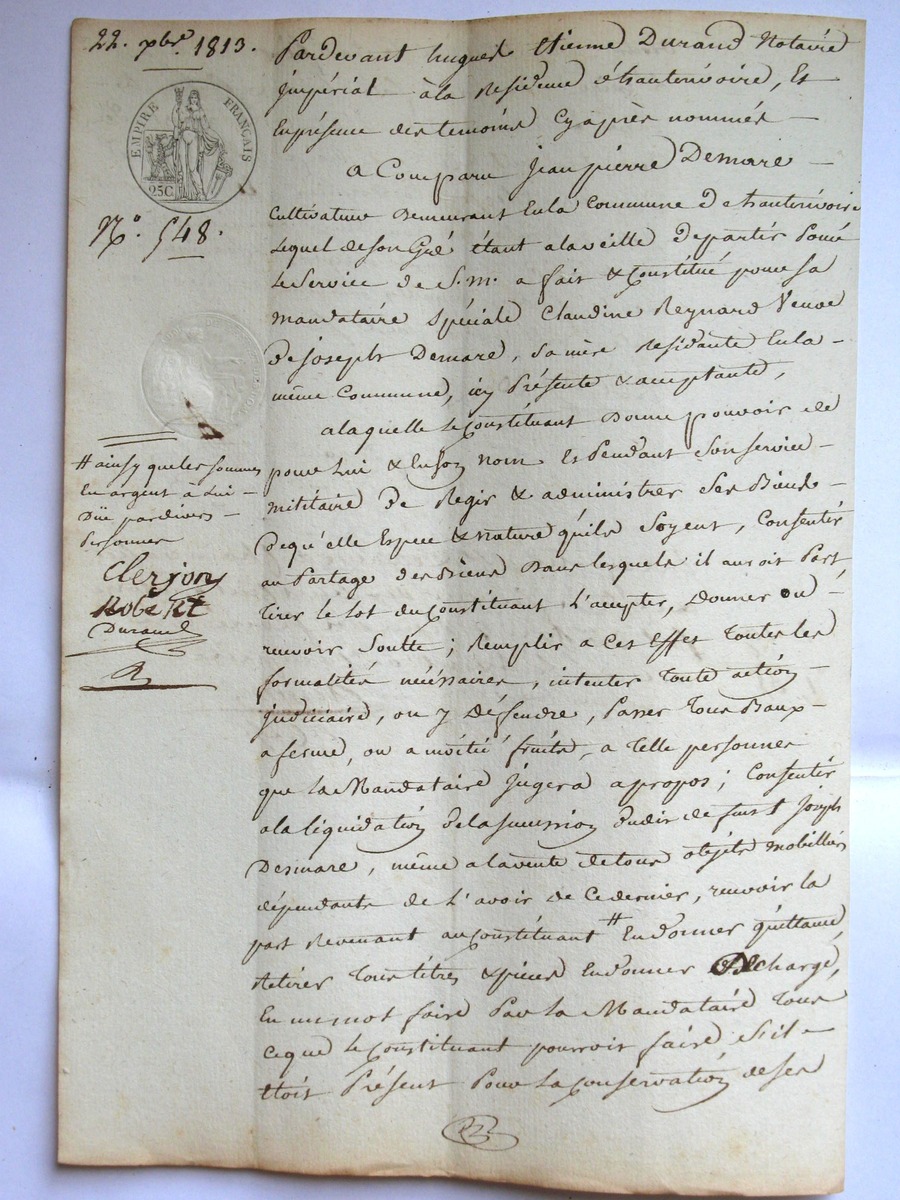 22. xbre 1813.
EMPIRE FRANÇAIS
25C
No. 548.
Pardevant hugues Etienne Durand Notaire
impérial à la Residence d'hauterivoire, Et
En présence des temoins Cy après nommés
a Comparu Jean pierre Demare
Cultivateur Demeurant En la Commune d'hauterivoire
Lequel de son Gré étant a la veille de partir Pour
Le Service de S. M. a fait & Constitué pour sa
mandataire Spéciale Claudine Reynard Veuve
de joseph Demare, Sa mère Residante En la
même Commune, icy Présente & acceptante,
a laquelle le Constituant Donne pouvoir de
pour Lui & En son nom Et Pendant Son service
militaire de Regir & administrer Ses Biens
de qu'elle Espece & nature qu'ils Soyent, Consentir
au Partage des Biens Dans lesquels il auroit Part
tirer le lot du Constituant L'accepter, Donner ou
recevoir Soulte ; Remplir a Cet Effet Toutes les
formalités nécéssaires, intenter Toute action
judiciaire, ou y Défendre, Passer Tous Baux
a ferme, ou a moitié fruits, a Telle personnes
que La Mandataire jugera apropos ; Consentir
a la liquidation de la succession dudit defunt Joseph
Desmare, même a la vente de tous objets mobilliers
dépendants de L'avoir de Ce dernier, recevoir la
part Revenant au Constituant # En donner quittance,
Retirer Tous titres & pièces En donner Décharge,
En un mot faire Par la Mandataire Tous
Ce que le Constituant pourroit faire S'il
étoit Présent Pour La Conservation de ses
# ainsy que les sommes
En argent à Lui
Düe par divers
Personnes
Clerjon
Robert
Durand